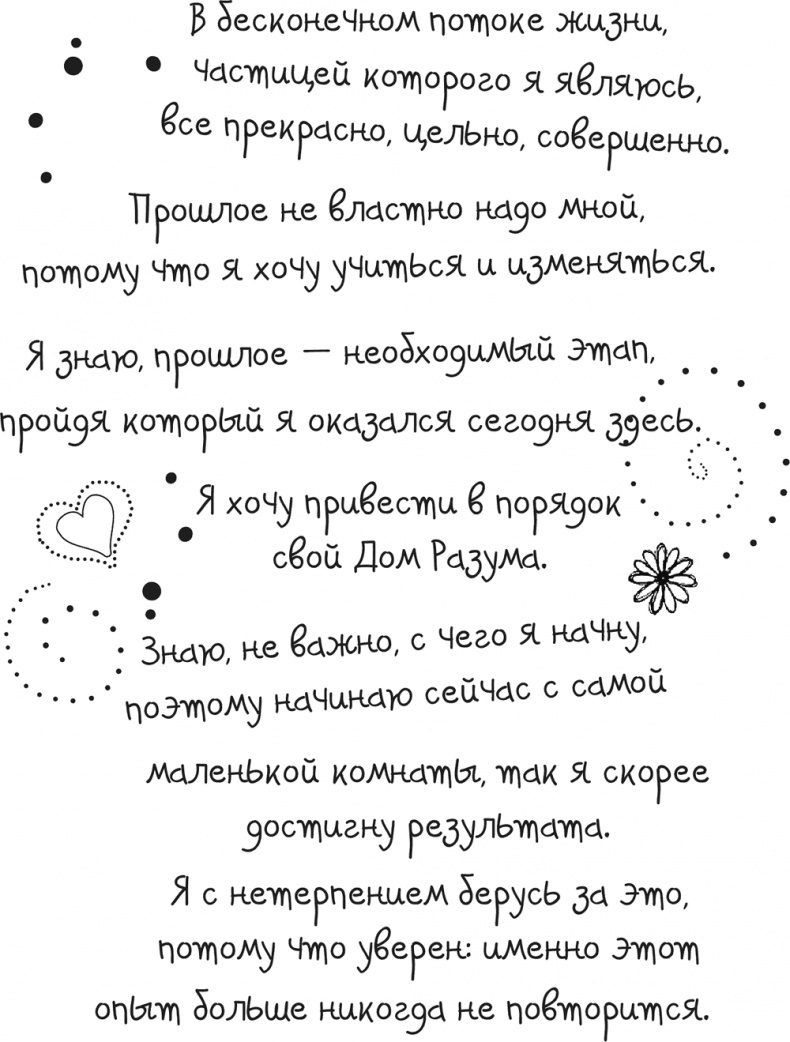 В бесконечном потоке жизни,
частицей которого я являюсь,
все прекрасно, цельно, совершенно.
Прошлое не властно надо мной,
потому что я хочу учиться и изменяться.
Я знаю, прошлое — необходимый этап,
пройдя который я оказался сегодня здесь.
Я хочу привести в порядок
свой Дом Разума.
Знаю, не важно, с чего я начну,
поэтому начинаю сейчас с самой
маленькой комнаты, так я скорее
достигну результата.
Я с нетерпением берусь за это,
потому что уверен: именно этот
опыт больше никогда не повторится.